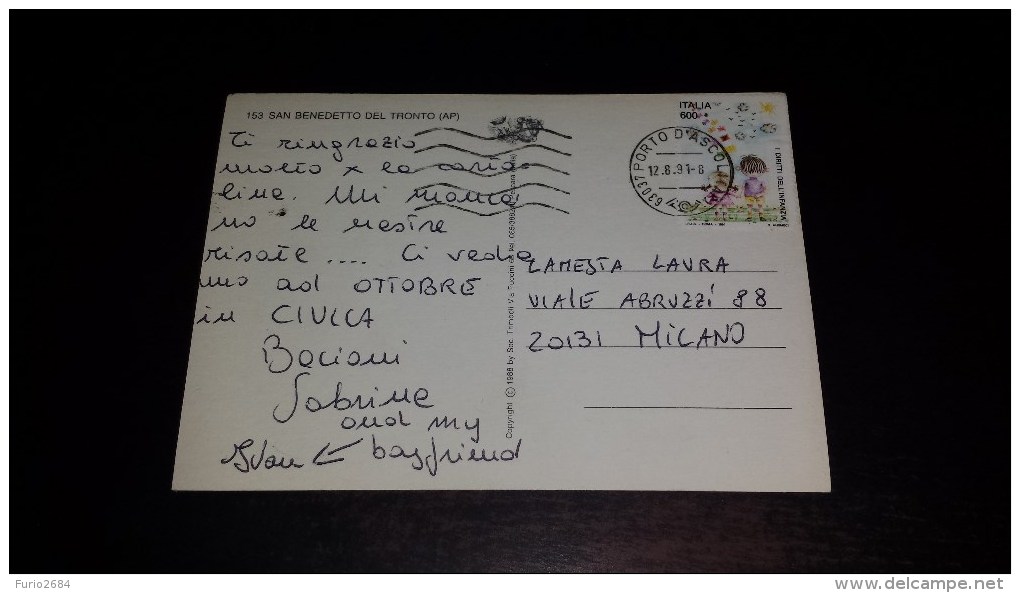 153 SAN BENEDETTO DEL TRONTO (AP)
Ti ringrazio
molto x la carto
lina. Mi manca
no le nostre
risate .... Ci vedia
mo ad OTTOBRE
in CIVICA
Bacioni
Sabrine
and my
boyfriend
Ivan
Copyright © 1988 by Soc. Trimboli Via Puccini
ITALIA
600
I DIRITTI DELL'INFANZIA
63037 PORTO D'ASCOLI (AP)
12.8.91-8
ZAMESTA LAURA
VIALE ABRUZZI 88
20131 MILANO
Furio2684
www.delcampe.net